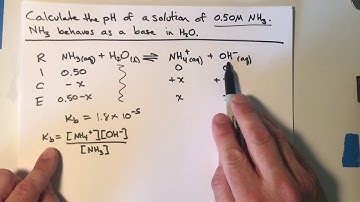 Calculate the pH of a solution of 0.50M NH₃.
NH₃ behaves as a base in H₂O.
R NH₃(aq) + H₂O(l) ⇌ NH₄⁺(aq) + OH⁻(aq)
I 0.50 0
C -x +x +
E 0.50-x x
K_b = 1.8 × 10⁻⁵
K_b = [NH₄⁺][OH⁻] / [NH₃]